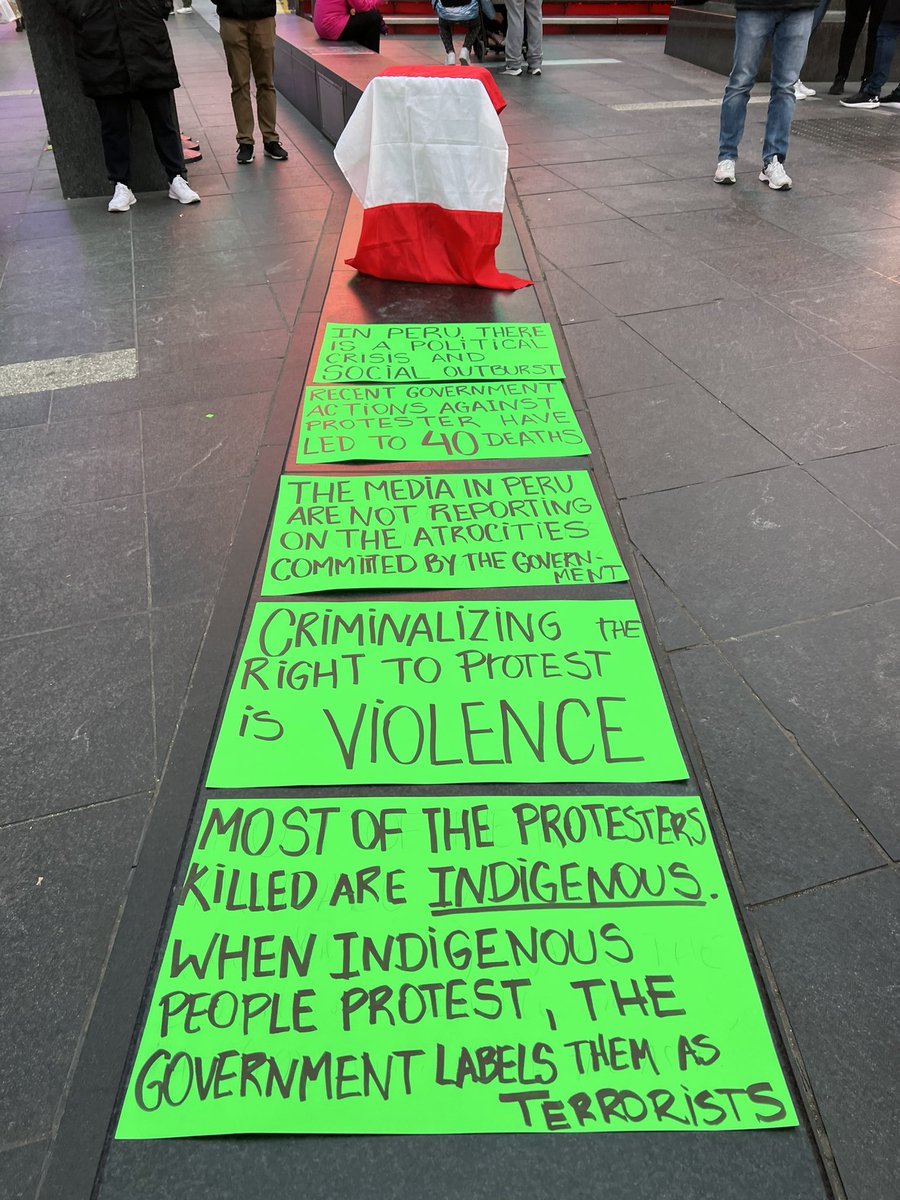 IN PERU, THERE
IS A POLITICAL
CRISIS AND
SOCIAL OUTBURST
RECENT GOVERNMENT
ACTIONS AGAINST
PROTESTER HAVE
LED TO 40 DEATHS
THE MEDIA IN PERU
ARE NOT REPORTING
ON THE ATROCITIES
COMMITTED BY THE GOVERN-
MENT
CRIMINALIZING THE
RIGHT TO PROTEST
IS VIOLENCE
MOST OF THE PROTESTERS
KILLED ARE INDIGENOUS.
WHEN INDIGENOUS
PEOPLE PROTEST, THE
GOVERNMENT LABELS THEM AS
TERRORISTS